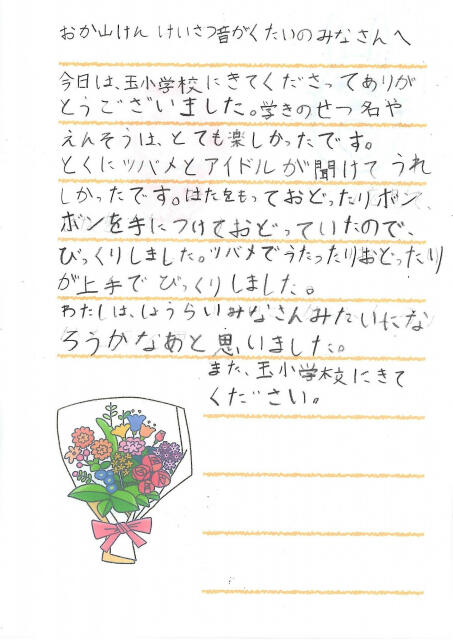 おか山けん けいさつ音がくたいのみなさんへ
今日は、玉小学校にきてくださってありが
とうございました。学きのせつ名や
えんそうは、とても楽しかったです。
とくにツバメとアイドルが聞けてうれ
しかったです。はたをもっておどったりポン
ポンを手につけておどっていたので、
びっくりしました。ツバメでうたったりおどったり
が上手でびっくりしました。
わたしは、しょうらいみなさんみたいにな
ろうかなあと思いました。
また、玉小学校にきて
ください。